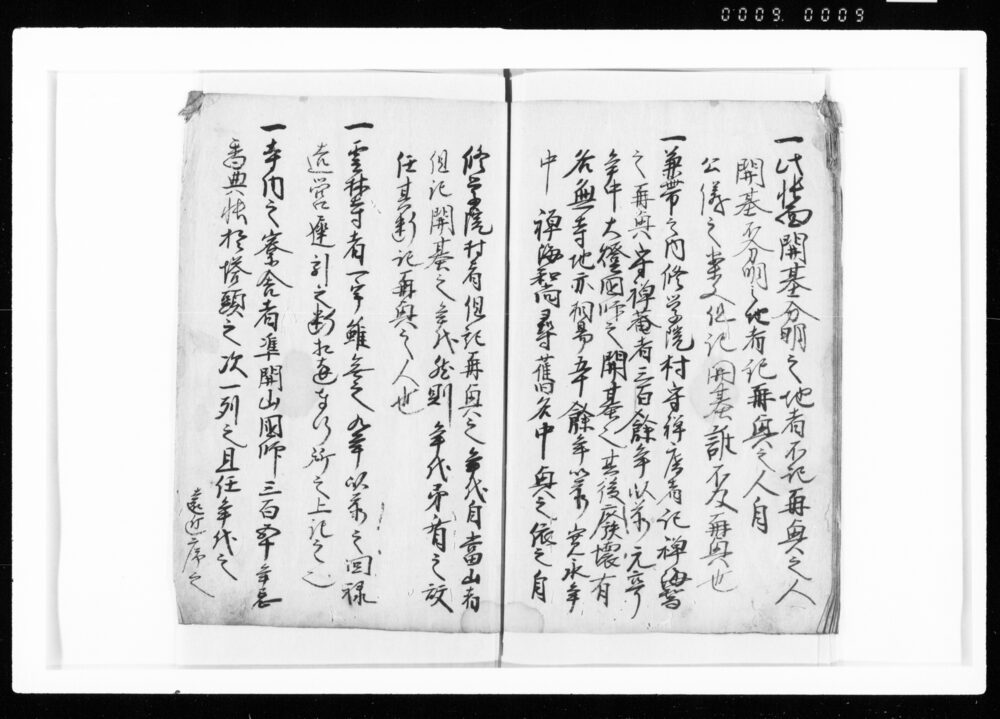 0009. 0009
一此帳面開基分明之地者不記再興之人
開基不分明之地者記再興之人自
公儀之掌又但記開基誰不及再興也
一兼帯之内修学院村守禅庵者記禅海
之再興守禅菴者三百餘年以前元亨
年中大燈国師之開基也其後廃壊有
名無寺地亦相易五十餘年以前寛永年
中 禅海和尚尋舊名中興之依之自
修学院村者但記再興之年代自當山者
但記開基之年代然則年代矛盾之故
任其断記再興之人也
一雲林寺者一宇雖無之九年以前之回禄
造営遅引之断松遠奉行所之上記之也
一寺内之寮舎者準開山國師三百五十年忌
香典帳於塔頭之次一列之且任年代之
遠近序之